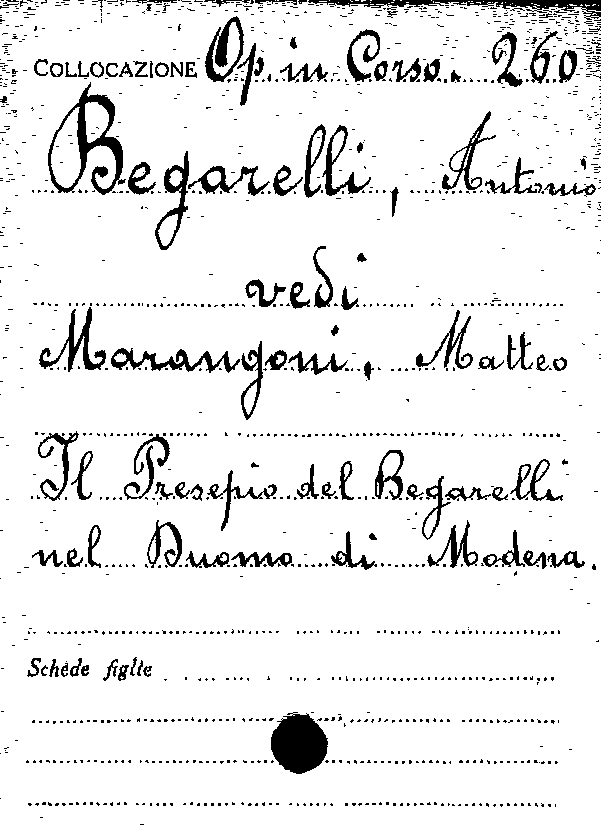 COLLOCAZIONE Op. in Corso. 260
Begarelli, Antonio
vedi
Marangoni, Matteo
Il Presepio del Begarelli
nel Duomo di Modena.
Schede figlie